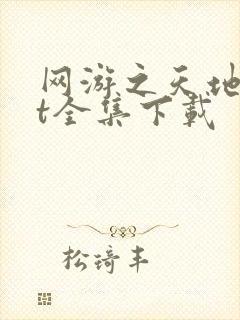 网游之天地
t全集下载
松琦丰